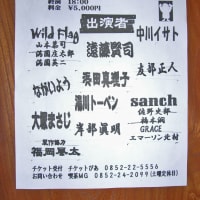 終演 18:00
料金 ¥5,000円
出演者
Wild Flag
山本恭司
満園庄太郎
満園英二
遠藤賢司
中川イサト
友部正人
ながいよう
浜田真理子
湯川トーベン
大塚まさじ
岸部眞明
sanch
佐野史郎
GRACE
エマーソン北村
製作協力
福岡暴太
チケット受付 チケットぴあ 0852-22-5556
お問い合わせ 喫茶MG 0852-24-2099(土曜定休日)